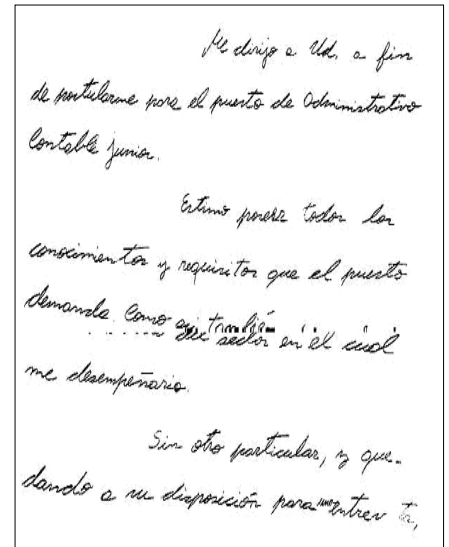 Me dirijo a Ud. a fin
de postularme para el puesto de Administrativo
Contable junior.
Estimo poseer todos los
conocimientos y requisitos que el puesto
demanda. Como así también
del sector en el cual
me desempeñaria.
Sin otro particular, y que-
dando a su disposición para una entrev ta,